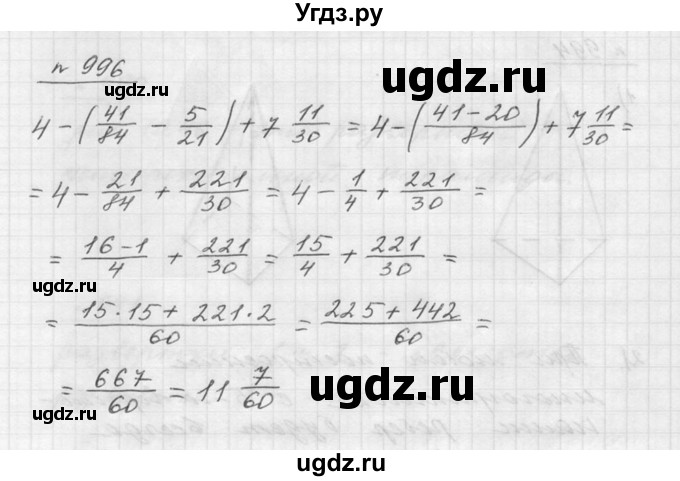 Угдз.ру
n 996
ugdz.ru
4 - (41/84 - 5/21) + 7 11/30 = 4 - ((41-20)/84) + 7 11/30 =
= 4 - 21/84 + 221/30 = 4 - 1/4 + 221/30 =
ugdz.ru
= (16-1)/4 + 221/30 = 15/4 + 221/30 =
ugdz.ru
ugdz.ru
= (15·15 + 221·2)/60 = (225 + 442)/60 =
= 667/60 = 11 7/60
ugdz.ru
ugdz.ru
ugdz.ru